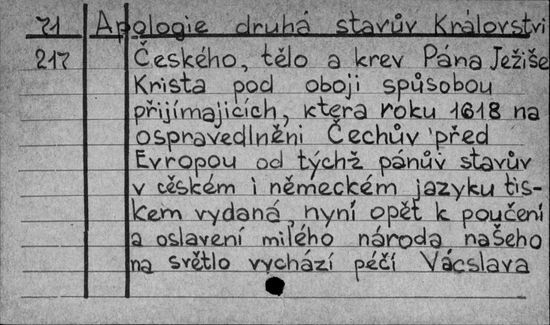 71 Apologie druhá stavův Královstvi
217 Českého, tělo a krev Pána Ježiše
Krista pod oboji spůsobou
přijímajicích, ktera roku 1618 na
ospravedlněni Čechův před
Evropou od týchž pánův stavův
v cěském i německém jazyku tis-
kem vydaná, nyní opět k poučení
a oslavení milého národa našeho
na světlo vychází péčí Vácslava